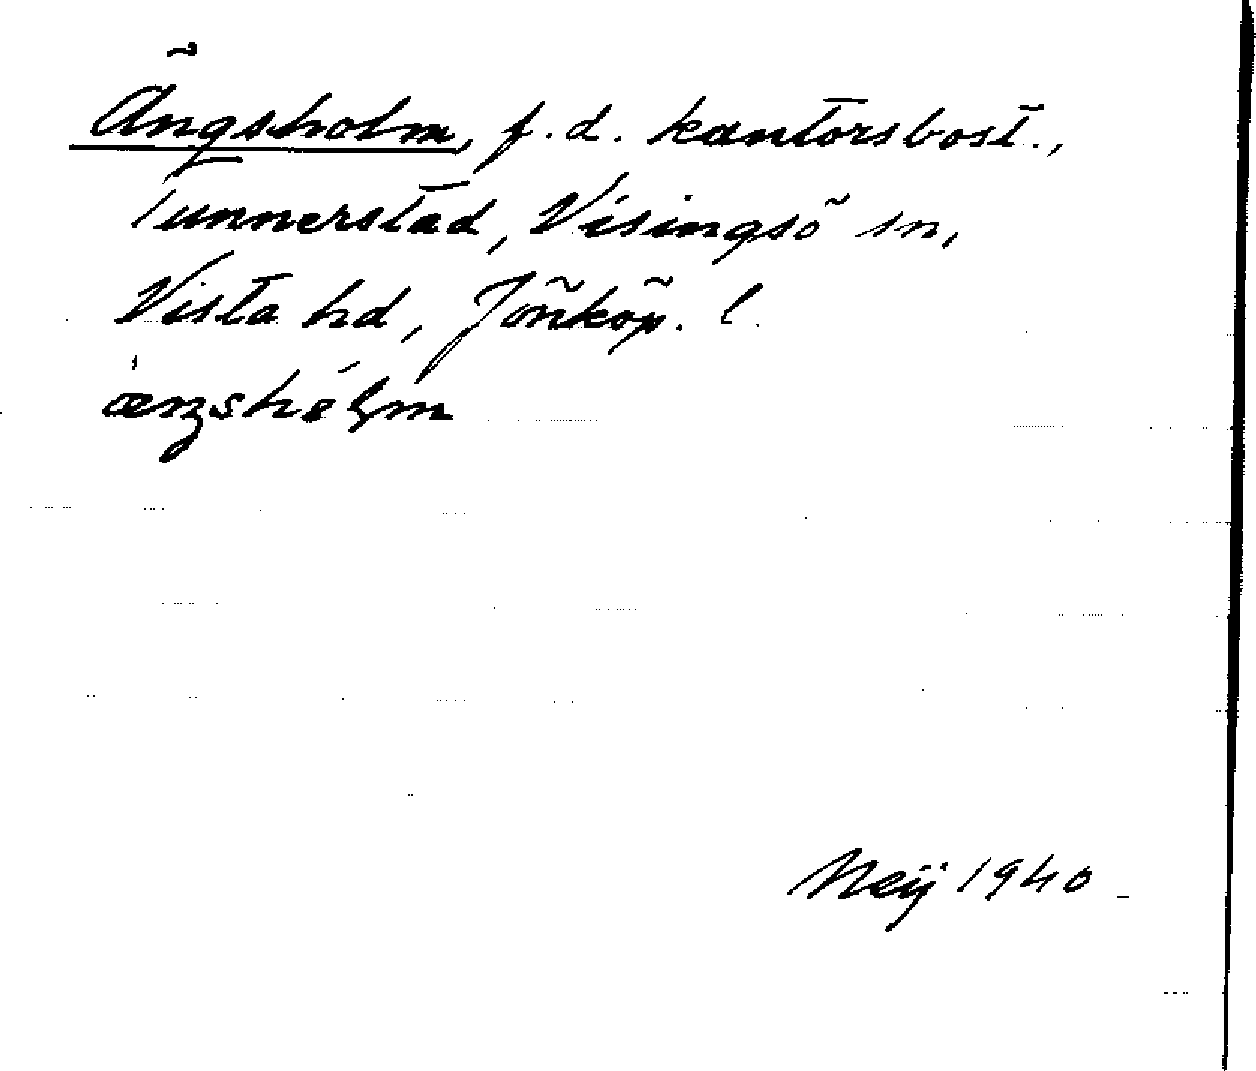 Ängsholm, f.d. kantorsbost.,
Tunnerstad, Visingsö sn,
Vista hd, Jönköp. l.
Neij 1940